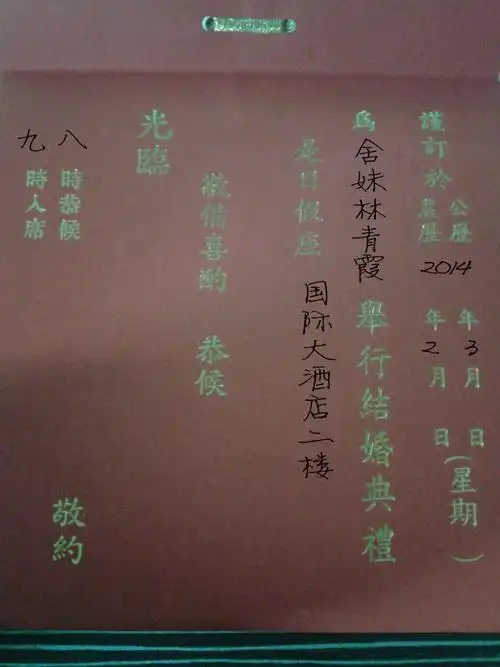 謹訂於
公曆 年3月 日
農曆 2014 年2月 日
(星期 )
為舍妹林青霞舉行結婚典禮
是日假座 国际大酒店二楼
敬備喜酌 恭候
光臨
八時恭候
九時入席
敬約